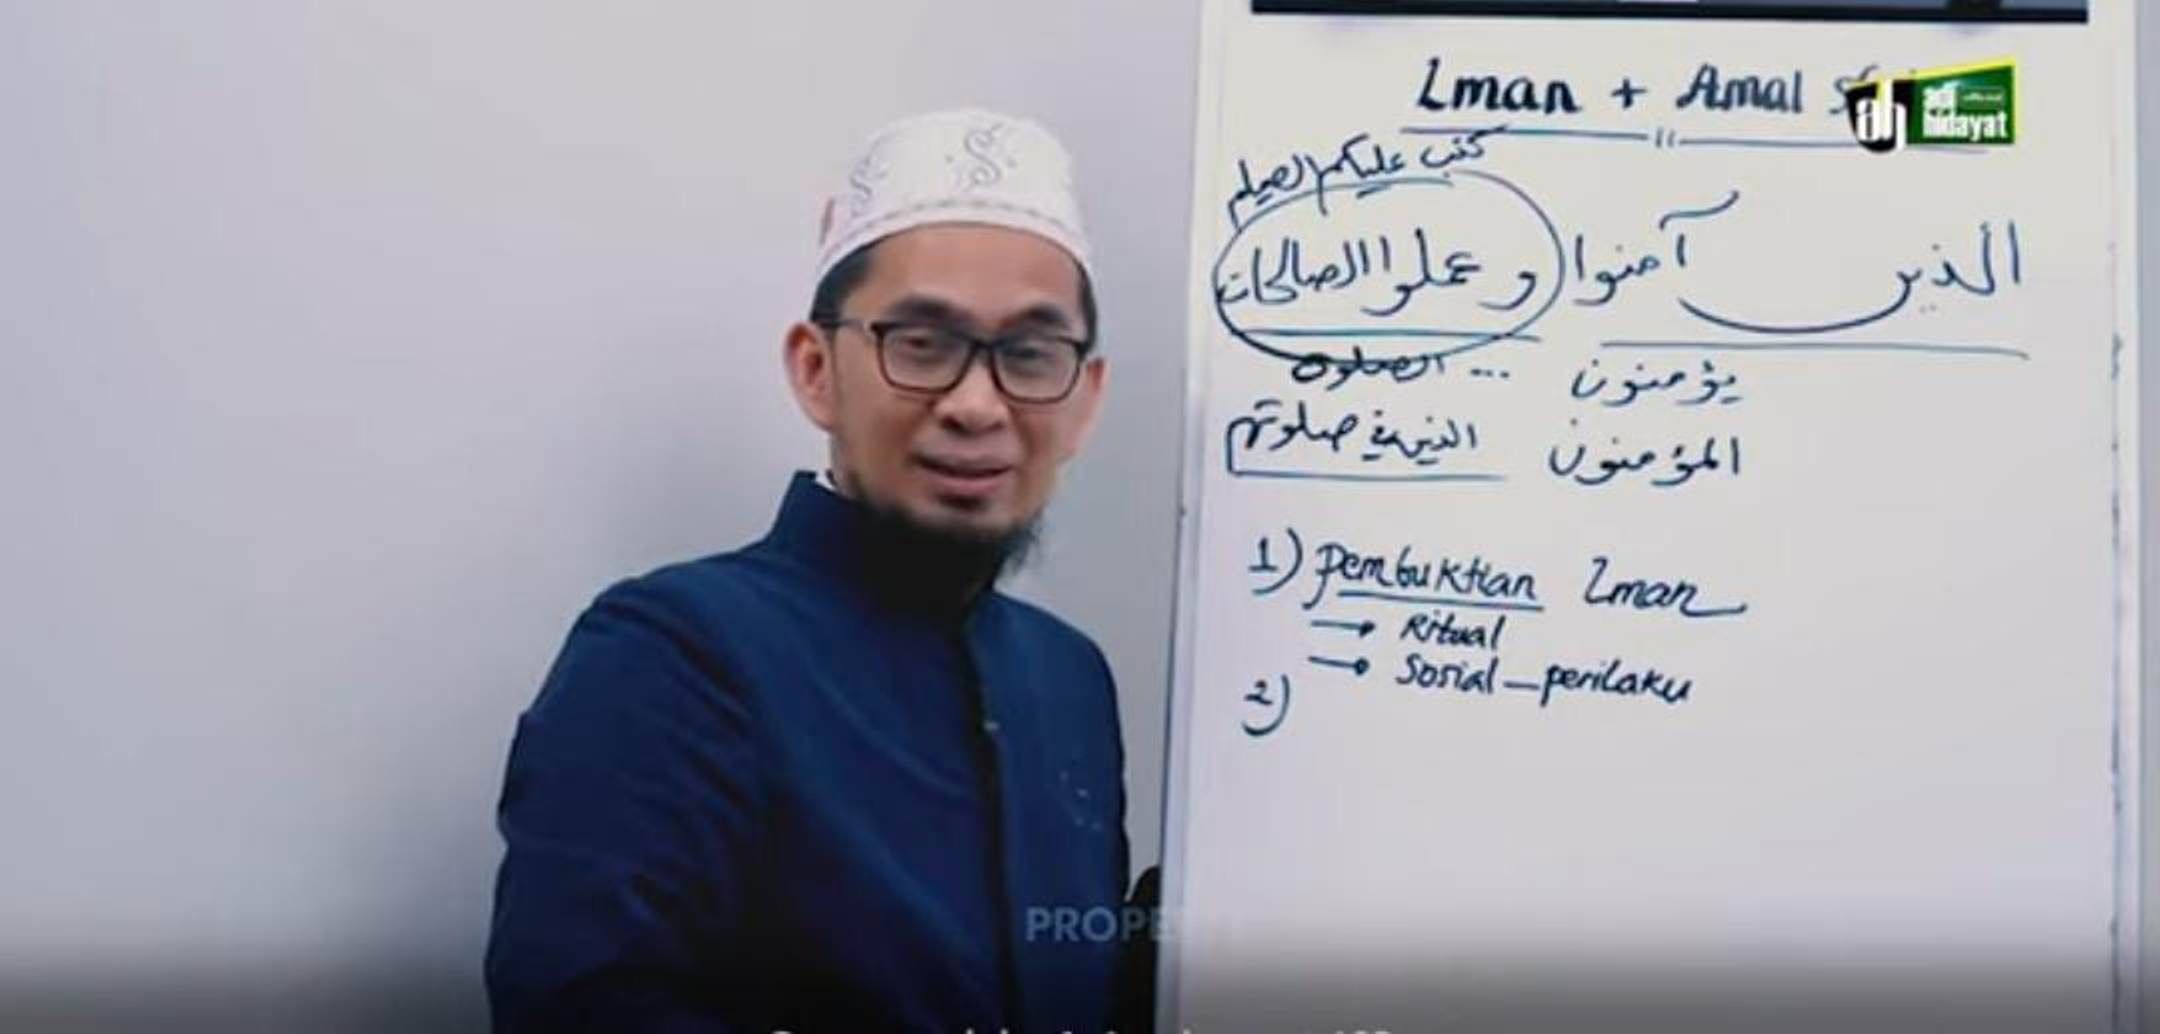 Iman + Amal
adi
hidayat
ah
كتب عليكم الصيام
الذين آمنوا وعملوا الصالحات
يؤمنون ... الصلوة
المؤمنون الذين في صلوتهم
1) Pembuktian Iman
→ Ritual
→ Sosial_perilaku
2)